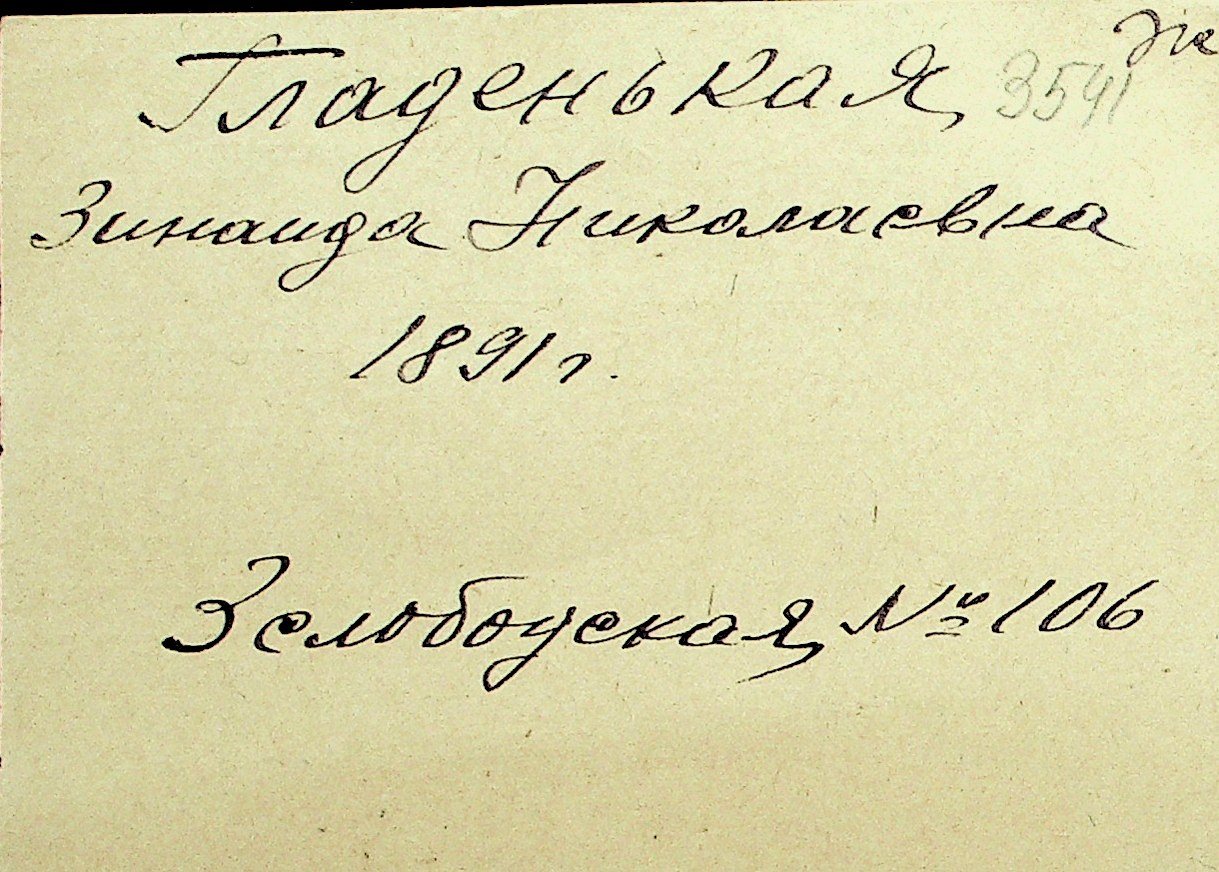 Гладенькая, 3541
Зинаида Николаевна
1891 г.
3 слободская, № 106